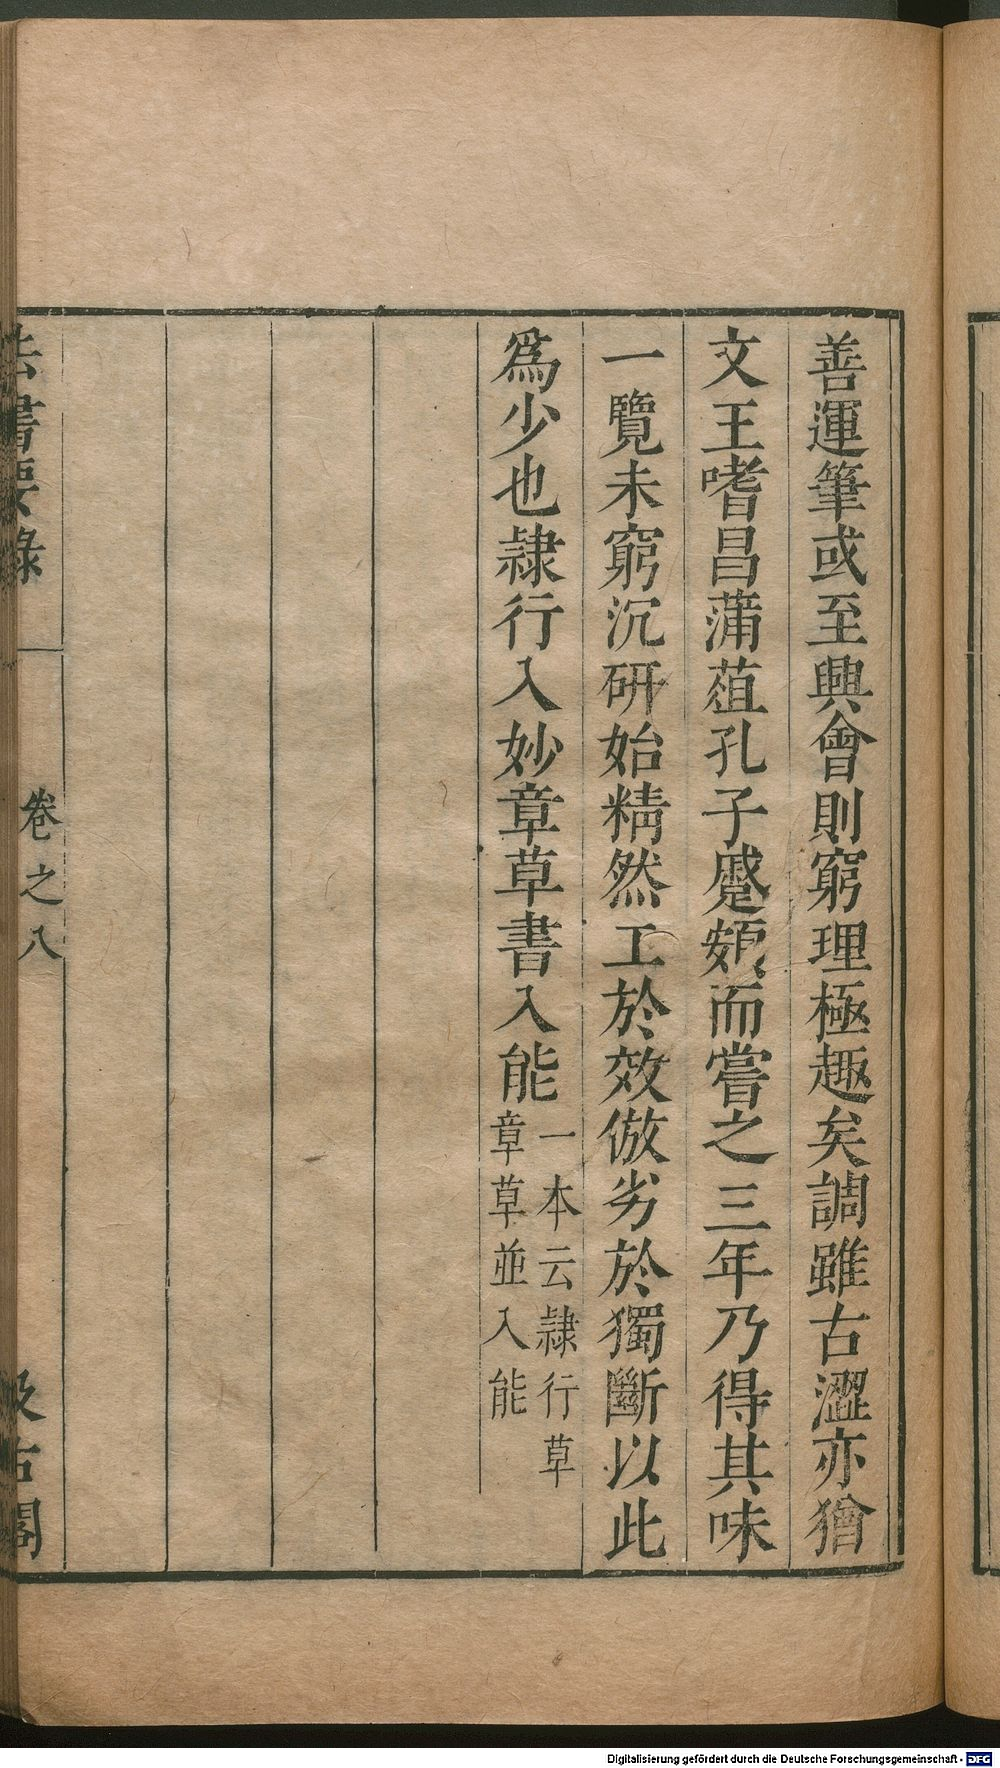 善運筆或至興會則窮理極趣矣調雖古澀亦猶
文王嗜昌蒲葅孔子蹙頞而嘗之三年乃得其味
一覽未窮沉研始精然工於效倣劣於獨斷以此
為少也隷行入妙章草書入能
一本云隷行草
章草並入能
法書要錄
卷之八
汲古閣
Digitalisierung gefördert durch die Deutsche Forschungsgemeinschaft - DFG